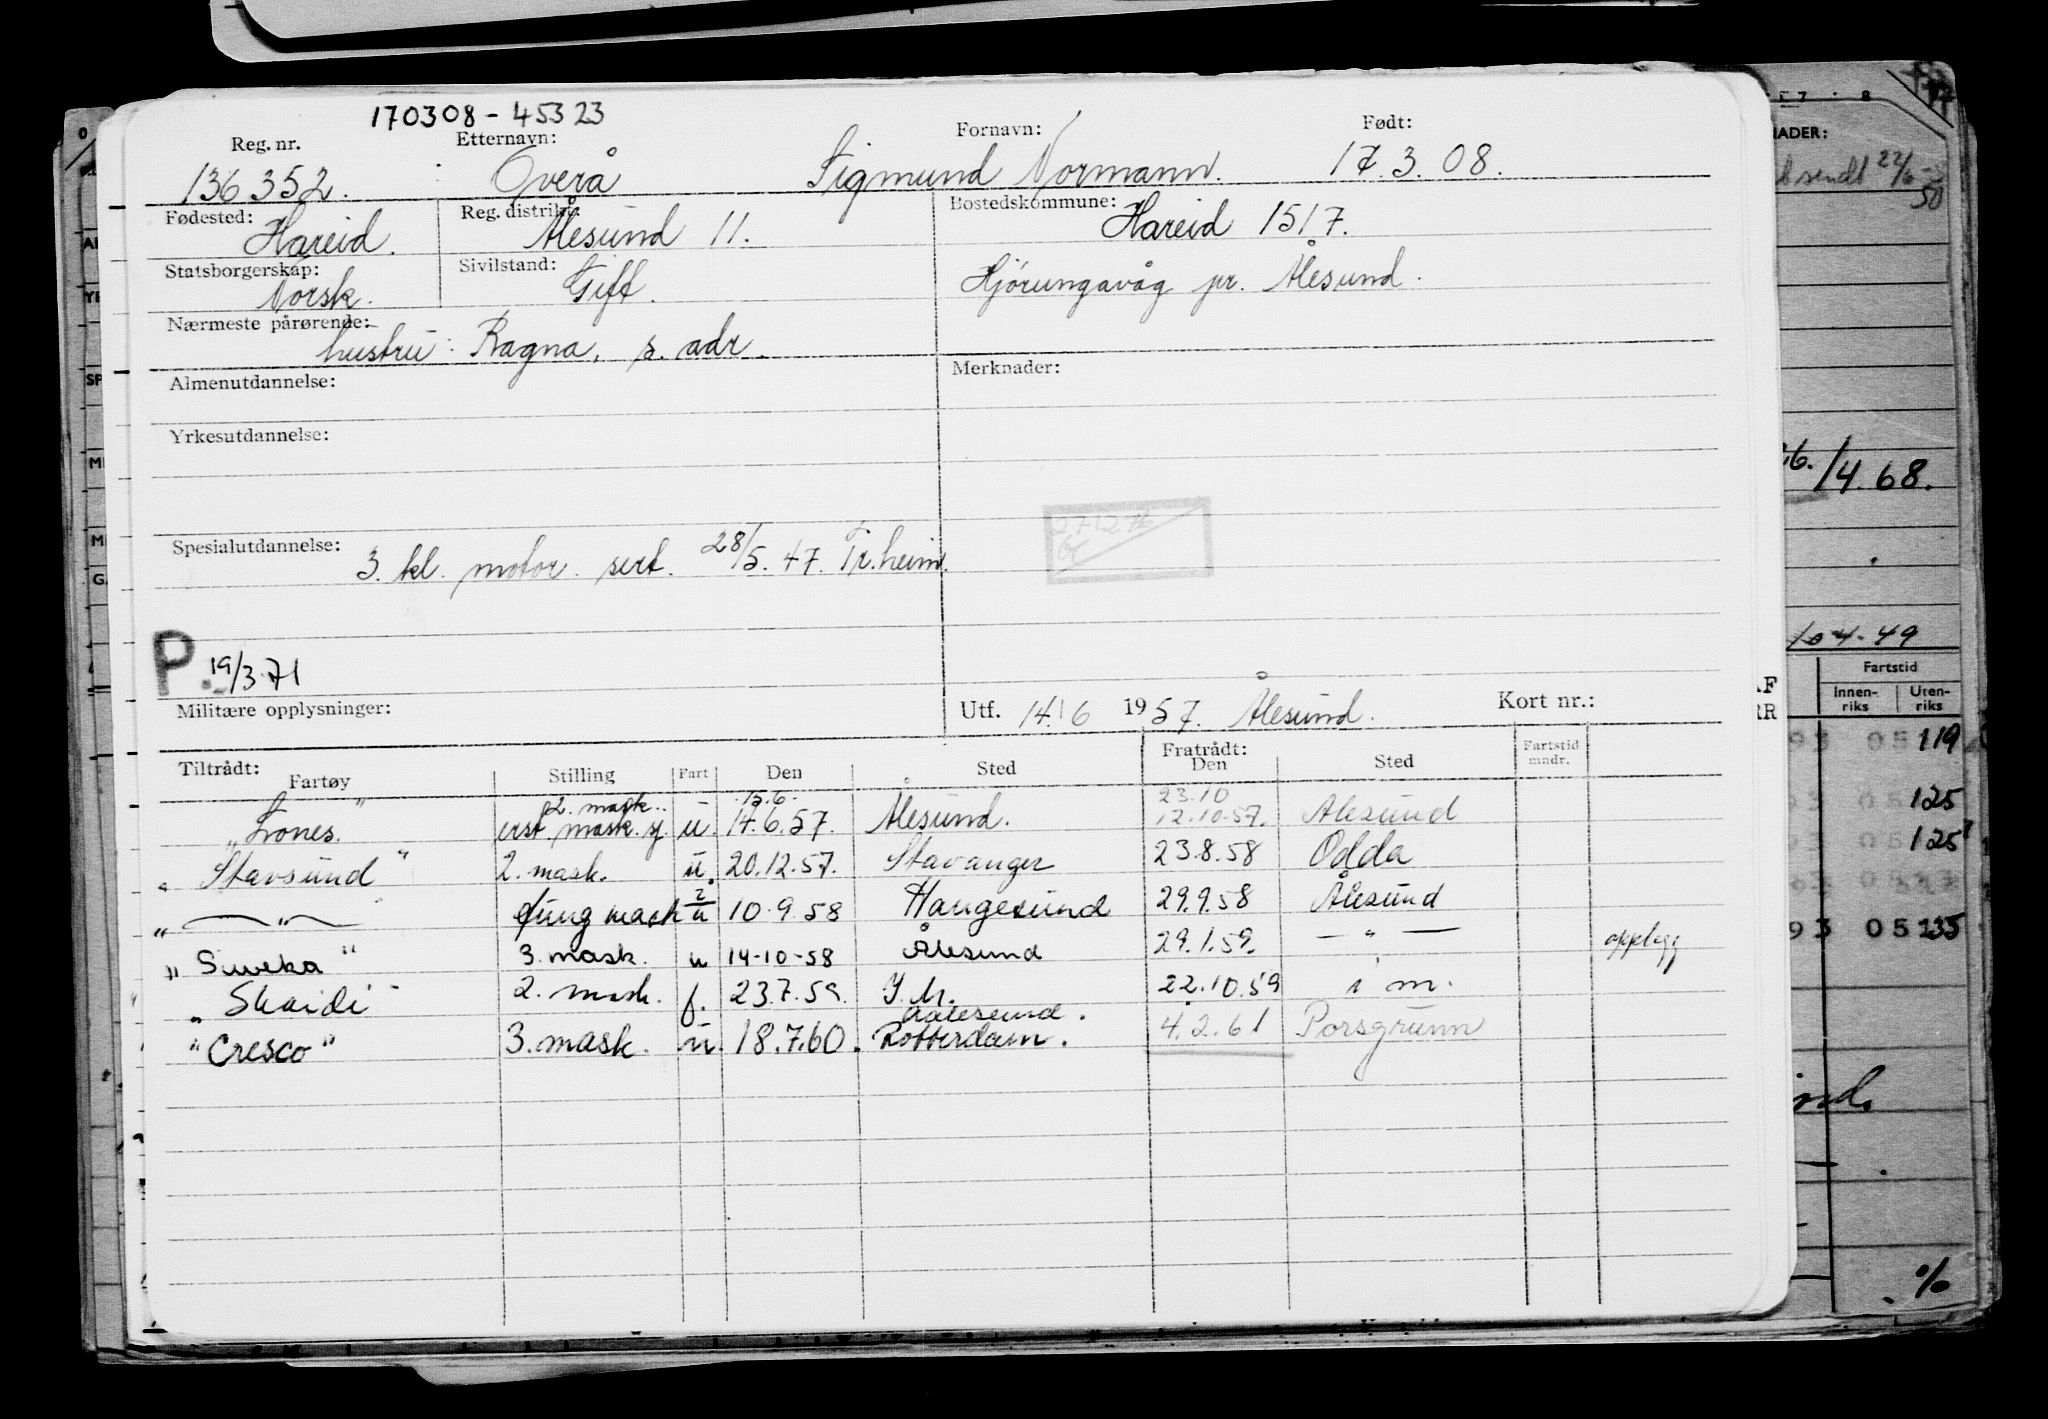 170308-45323
Reg. nr. Etternavn: Fornavn: Født:
136352. Overå Sigmund Normann. 17.3.08.
Fødested: Reg. distrikt: Bostedskommune:
Hareid. Ålesund 11. Hareid 1517.
Statsborgerskap: Sivilstand:
Norsk. Gift. Hjørungavåg pr. Ålesund.
Nærmeste pårørende:
hustru: Ragna, s. adr.
Almenutdannelse: Merknader:
Yrkesutdannelse:
27.12.76
Spesialutdannelse: 3. kl. motor. sert. 28/5.47. Tr.heim.
P. 19/3.71
Militære opplysninger: Utf. 14/6 1957. Ålesund. Kort nr.:
Tiltrådt: Fratrådt:
Fartøy Stilling Fart Den Sted Den Sted Fartstid mndr.
2. mask. 15.6. 23.10
"Trones." mask. u. 14.6.57. Ålesund. 12.10.57. Ålesund
"Stavsund" 2. mask. u. 20.12.57. Stavanger 23.8.58 Odda
" — " — mask u 10.9.58 Haugesund 29.9.58 Ålesund
"Suveka" 3. mask. u 14-10-58 Ålesund 29.1.59. — " — opplegg
"Skaidi" 2. mask. f. 23.7.59. I M. 22.10.59 i m.
Aalesund.
"Cresco" 3. mask. u. 18.7.60. Rotterdam. 4.2.61 Porsgrunn
NADER:
sendt 22/6 50
26./4.68.
10 4-49
Fartstid
Innen-riks Uten-riks
93 05 119
125
125
93 05 135
%